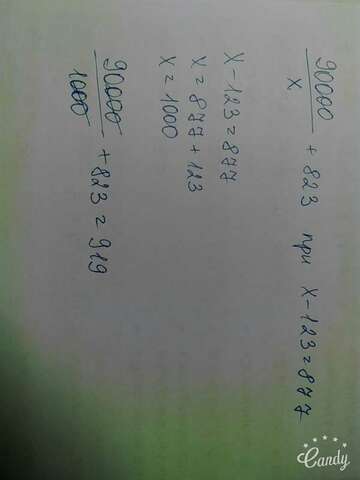 90000
x + 823 при x - 123 = 877
x - 123 = 877
x = 877 + 123
x = 1000
90000
1000 + 823 = 919
Candy